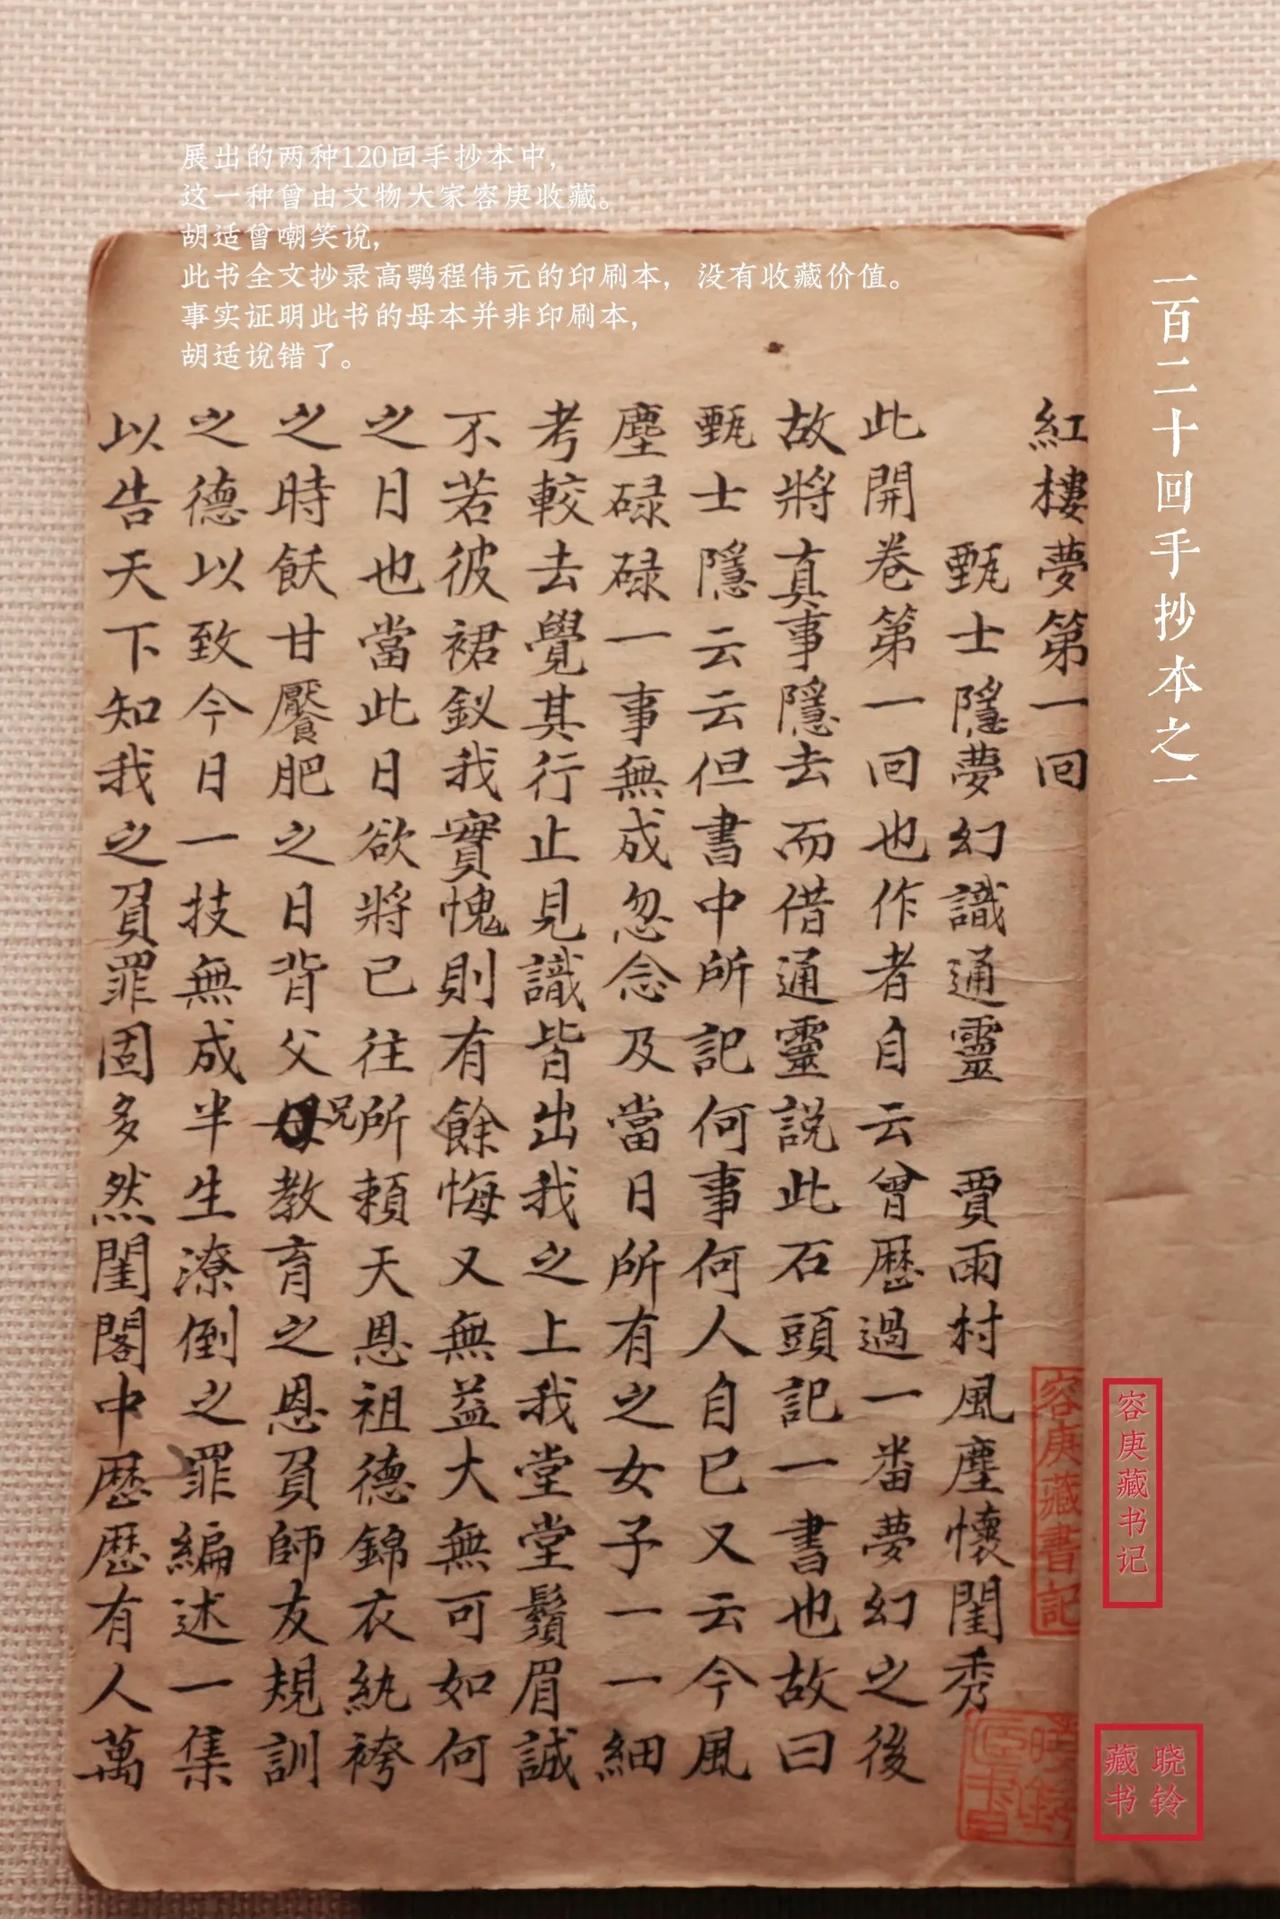 展出的两种120回手抄本中，
这一种曾由文物大家容庚收藏。
胡适曾嘲笑说，
此书全文抄录高鹗程伟元的印刷本，没有收藏价值。
事实证明此书的母本并非印刷本，
胡适说错了。
一百二十回手抄本之一
紅樓夢第一囬
甄士隱夢幻識通靈　賈雨村風塵懷閨秀
此開卷第一囬也作者自云曾歷過一番夢幻之後
故將真事隱去而借通靈說此石頭記一書也故曰
甄士隱云云但書中所記何事何人自已又云今風
塵碌碌一事無成忽念及當日所有之女子一一細
考較去覺其行止見識皆出我之上我堂堂鬚眉誠
不若彼裙釵我實愧則有餘悔又無益大無可如何
之日也當此日欲將已往所賴天恩祖德錦衣紈袴
之時飫甘饜肥之日背父兄教育之恩負師友規訓
之德以致今日一技無成半生潦倒之罪編述一集
以告天下知我之負罪固多然閨閣中歷歷有人萬
容庚藏書記
容庚藏书记
晓铃
藏书